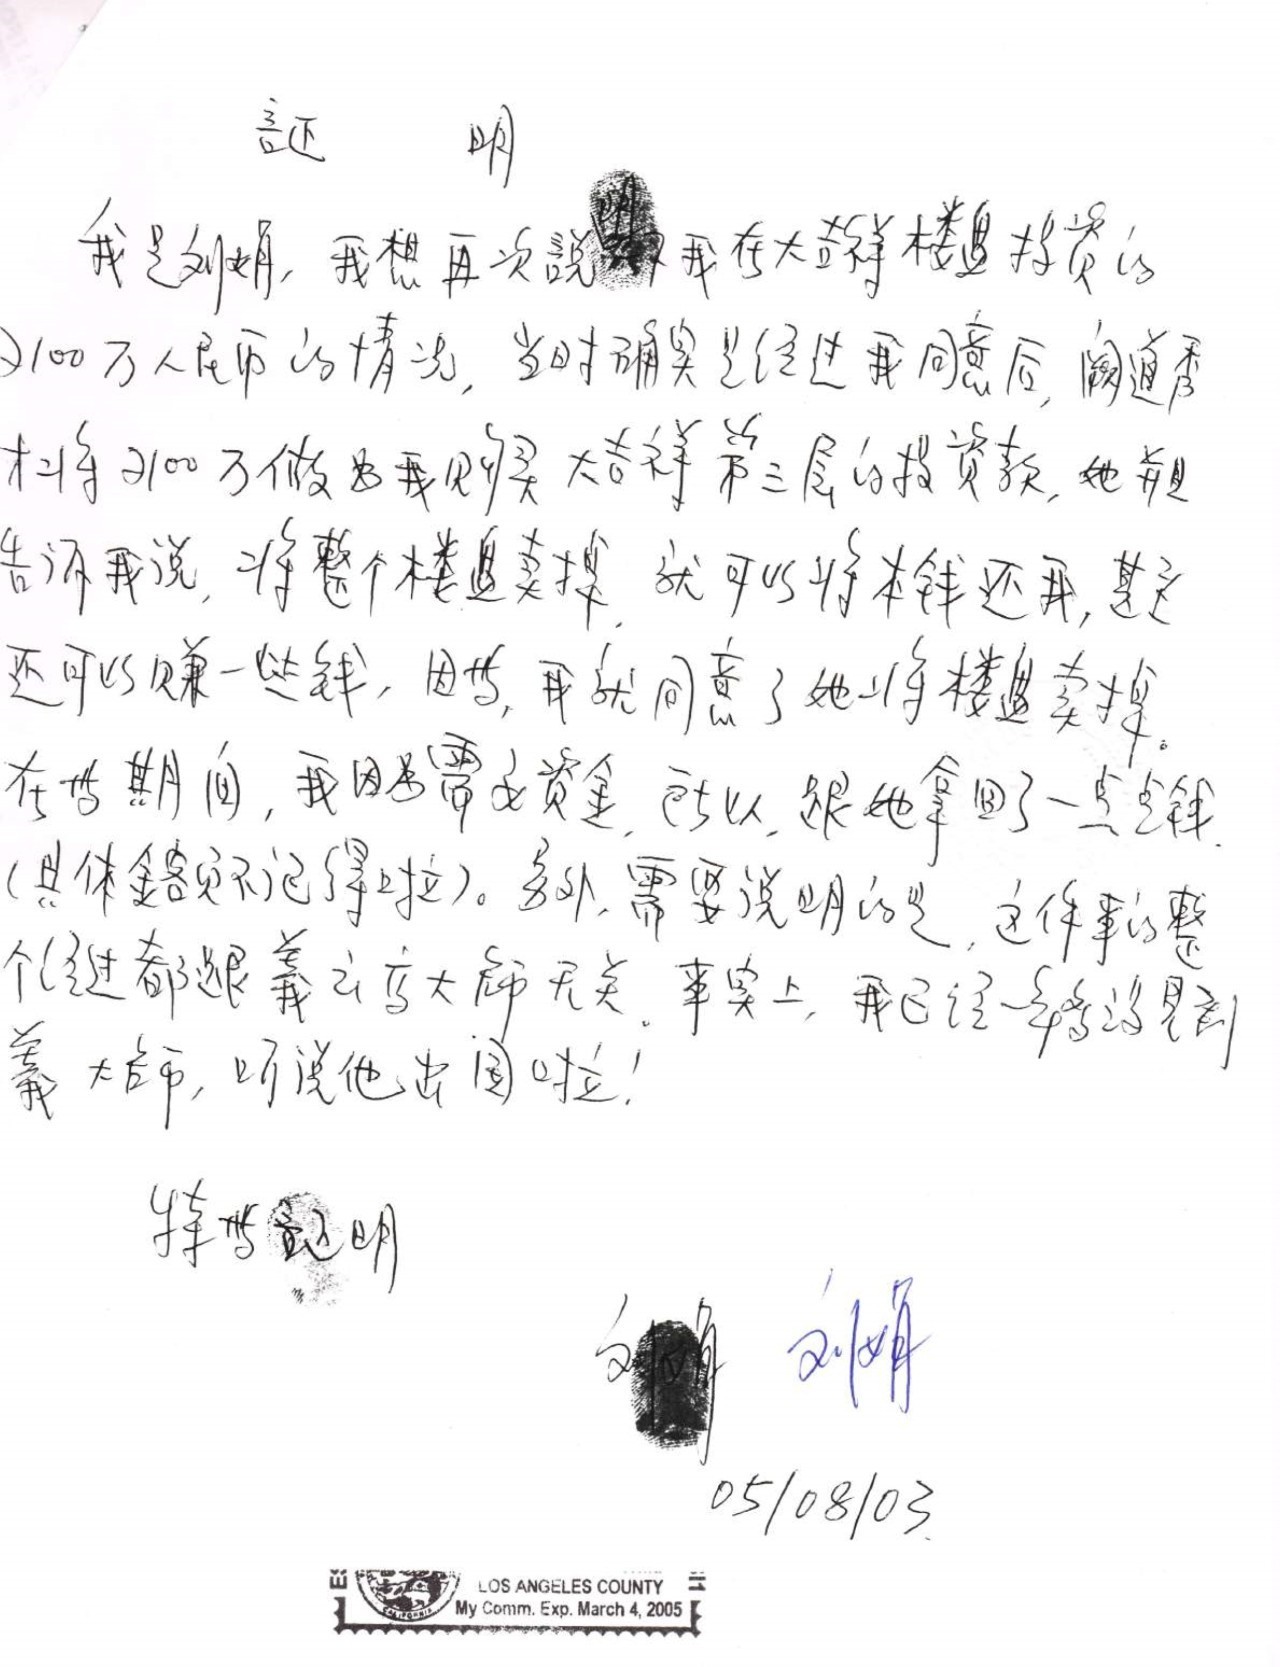 証 明
我是刘娟，我想再次説明我在大吉祥楼盘投资的
2100万人民币的情况，当时确实是经过我同意后，阙道秀
才将2100万做为我购买大吉祥第三层的投资款，她并且
告诉我说，将整个楼盘卖掉，就可以将本钱还我，甚至
还可以赚一些钱，因此，我就同意了她将楼盘卖掉。
在此期间，我因为需要资金，所以，跟她拿回了一点点钱
(具体金额不记得啦)。另外，需要说明的是，这件事的整
个经过都跟義云高大师无关。事实上，我已经一年多没见到
義大师，听说他出国啦！
特此証明
刘娟 刘娟
05/08/03
LOS ANGELES COUNTY
CALIFORNIA
My Comm. Exp. March 4, 2005